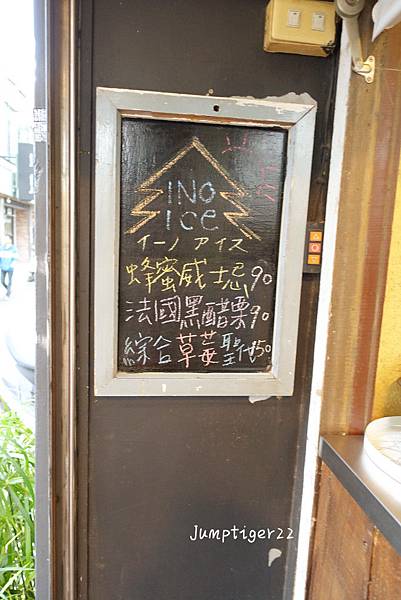 INO
ICe
イーノ アイス
蜂蜜威士忌90
法國黑醋栗90
綜合草莓聖代150
Jumptiger22